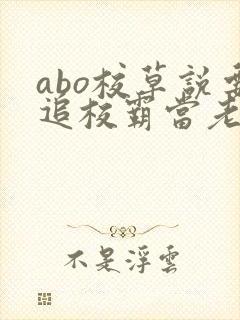 abo校草説要
追校霸當老
不是浮雲